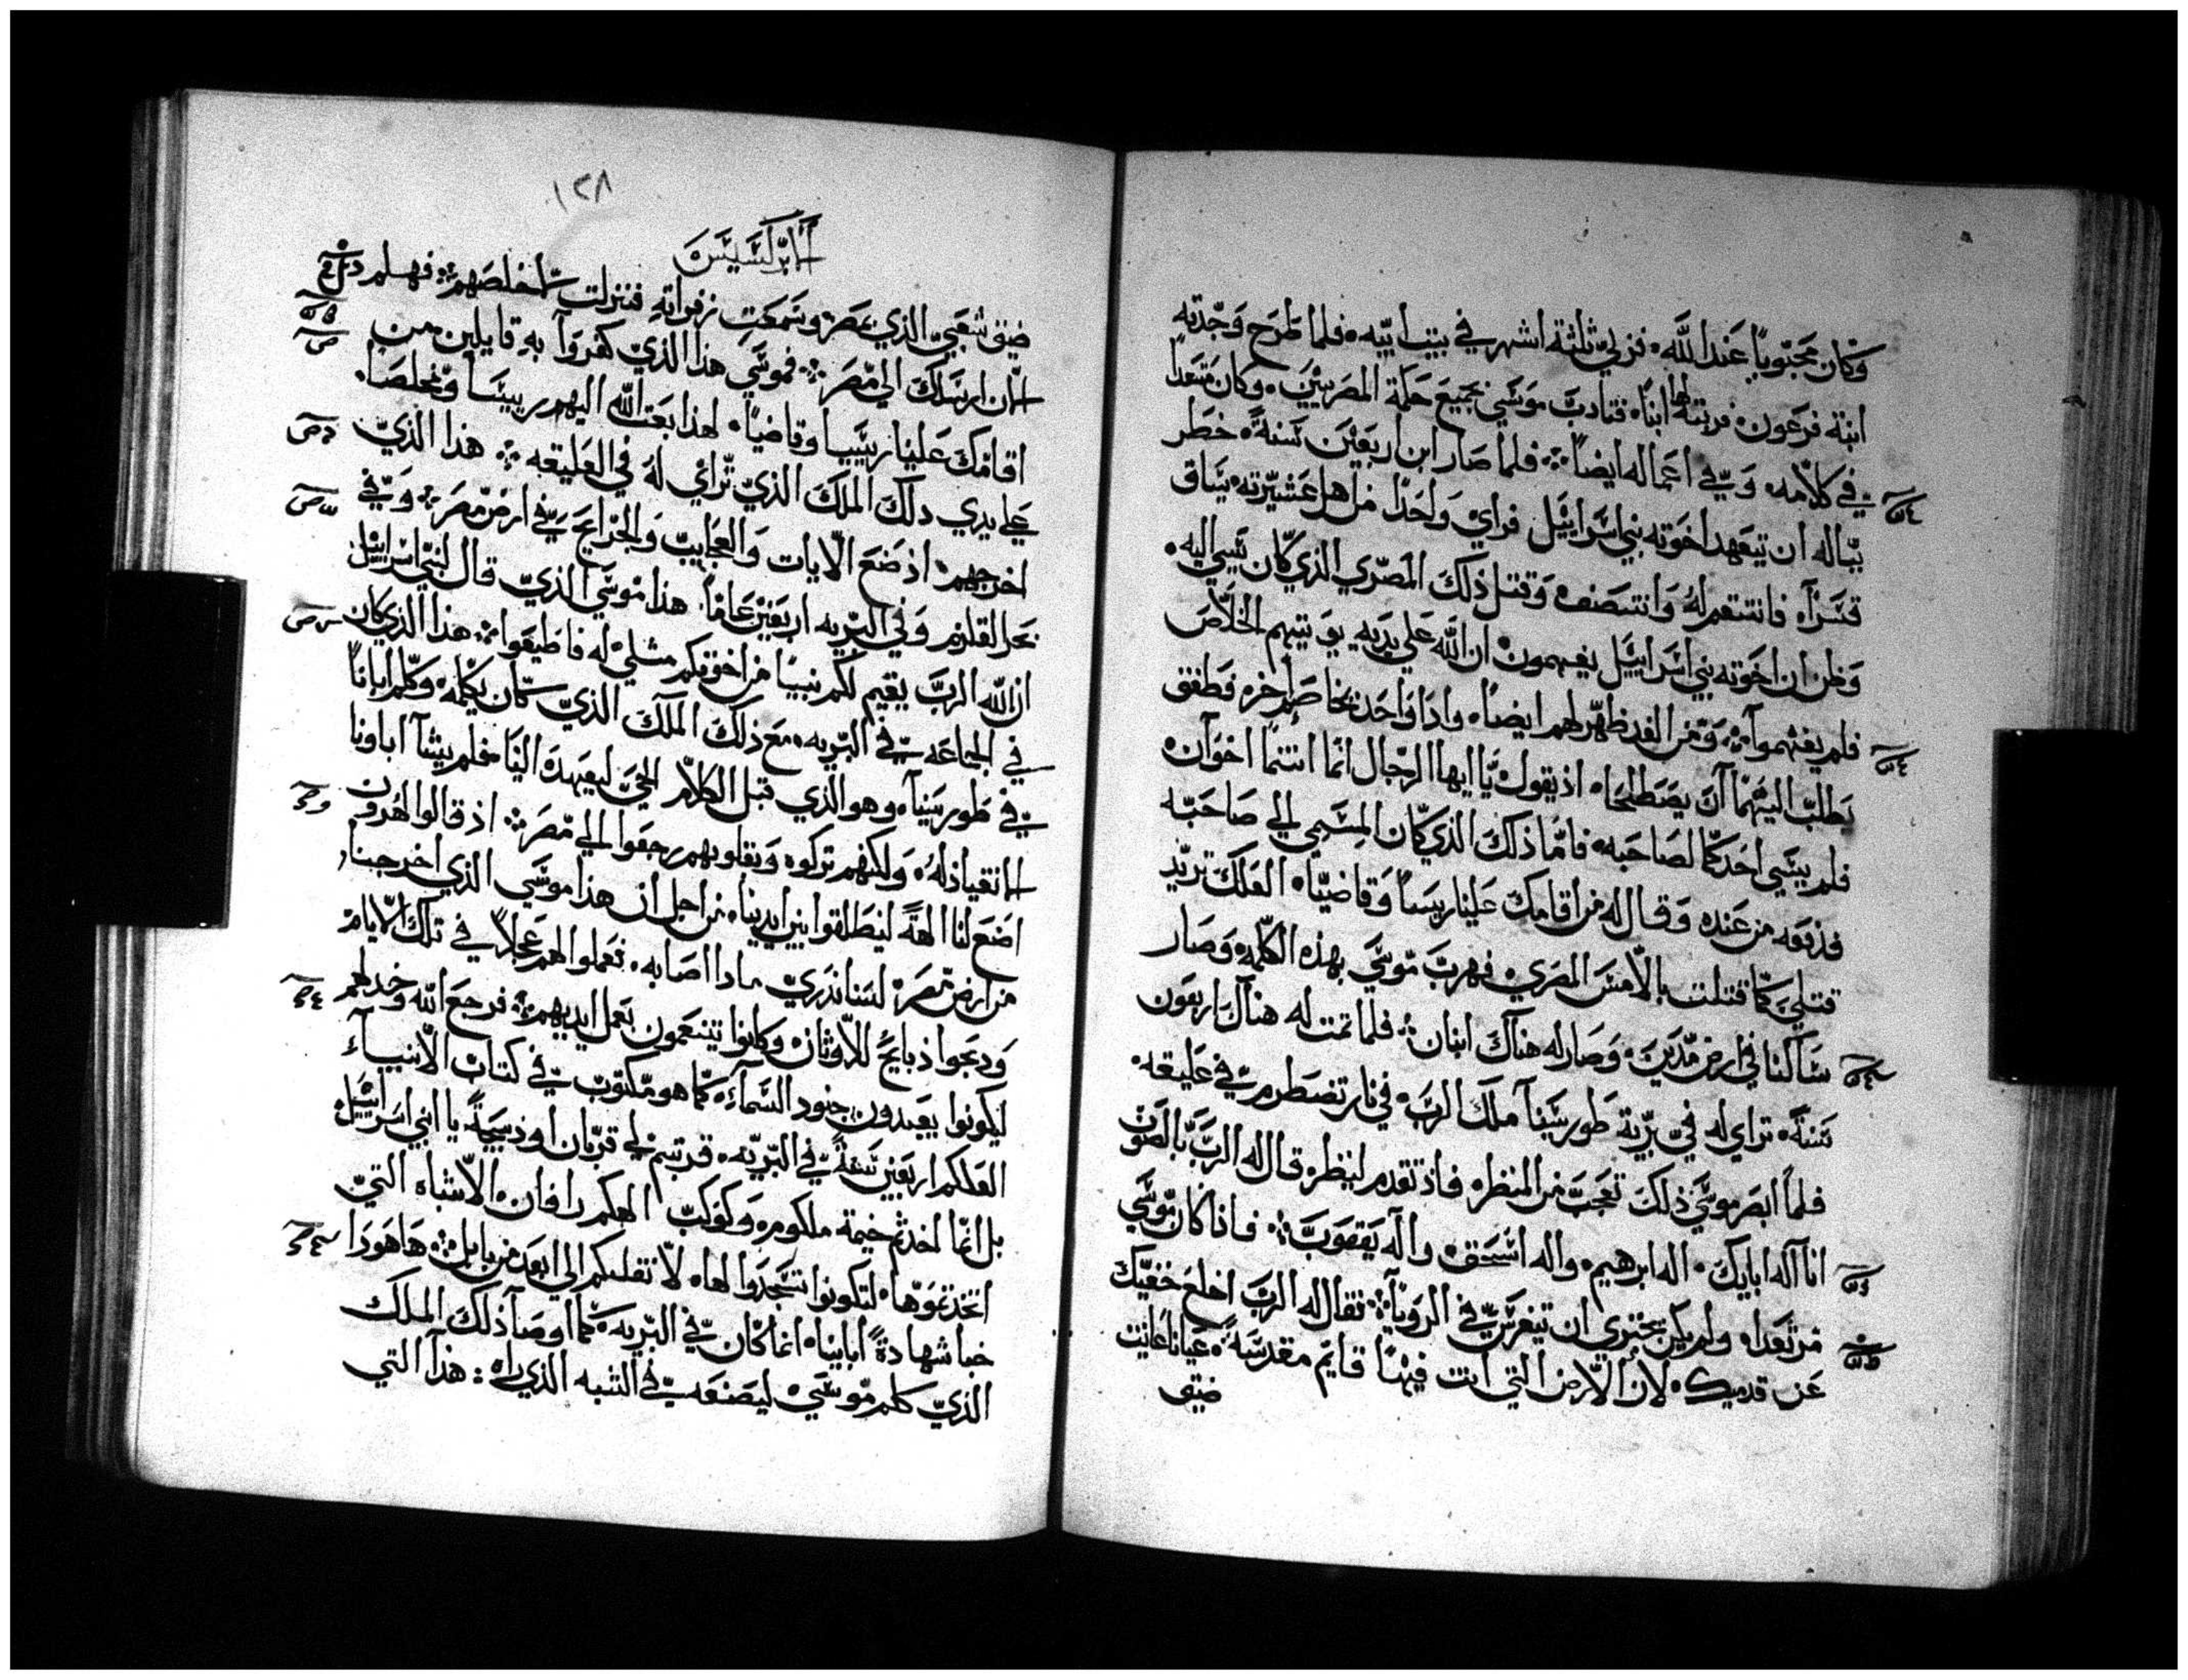 وكان محبوبًا عند الله. فربي ثلثة اشهر في بيت ابيه. فلما طرح وجدته
ابنة فرعون. فربته لها ابنًا. فتادب موسي بجميع حكمة المصريين. وكان مستعدًا
في كلامه وفي اعماله ايضًا. فلما صار ابن اربعين سنةً. خطر
بباله ان يتعهد اخوته بني اسراييل فراي واحدًا من اهل عشيرته يساق
قسرًا. فانتقم له وانتصف وقتل ذلك المصري الذي كان يسي اليه.
وظن ان اخوته بني اسراييل يفهمون ان الله علي يديه يوتيهم الخلاص
فلم يفهموا. ومن الغد ظهر لهم ايضًا. واذا واحد يخاصم اخر. فطفق
يطلب اليهما ان يصطلحا. اذ يقول يا ايها الرجال انما انتما اخوان
فلم يسي احدكما لصاحبه. فاما ذلك الذي كان المسي الي صاحبه
فدفعه من عنده وقال له من اقامك علينا ريسًا وقاضيًا. العلك تريد
قتلي كما قتلت بالامس المصري. فهرب موسي بهذه الكلمه وصار
ساكنا في ارض مدين. وصار له هناك ابنان. فلما تمت له هناك اربعون
سنة. تراي له في برية طور سينا ملك الرب. في نار تضطرم في عليقه.
فلما ابصر موسي ذلك تعجب من المنظر. فاذ تقدم لينظر. قال له الرب بالصوت
انا اله ابايك. اله ابرهيم. واله اسحق. واله يعقوب. فاذا كان موسي
مرتعدا. ولم يكن يجتري ان يتفرس في الرويا. فقال له الرب اخلع خفيك
عن قدميك. لان الارض التي انت فيها قايم مقدسة. عيانا عاينت
ضيق
١٢٨
الابركسيس
ضيق شعبي الذي بمصر وسمعت زفراته فنزلت لاخلصهم. فهلم
الان ارسلك الي مصر. فموسي هذا الذي كفروا به قايلين من
اقامك علينا رييسا وقاضيًا. لهذا بعث الله اليهم رييسًا ومخلصًا.
علي يدي ذلك الملك الذي تراي له في العليقه. هذا الذي
اخرجهم. اذ صنع الايات والعجايب والجرايح في ارض مصر. وفي
بحر القلزم وفي البريه اربعين عامًا. هذا موسي الذي قال لبني اسراييل
ان الله الرب يقيم لكم نبيًا من اخوتكم مثلي. له فاطيعوا. هذا الذي كان
في الجماعه في البريه. مع ذلك الملك الذي كان يكلمه وكلم ابانا
في طور سينا. وهو الذي قبل الكلام الحي ليعهده الينا. فلم يشا اباونا
الانقياد له. ولكنهم تركوه وبقلوبهم رجعوا الي مصر. اذ قالوا لهرون
اصنع لنا الهةً لينطلقوا بين ايدينا. من اجل ان هذا موسي الذي اخرجنا
من ارض مصر. لسنا ندري ماذا اصابه. فعملوا لهم عجلاً في تلك الايام
ودبحوا ذبايح للاوثان وكانوا يتنعمون بعمل ايديهم. فرجع الله وخذلهم
ليكونوا يعبدون جنود السماء. كما هو مكتوب في كتاب الانبياء
العلكم اربعين سنةً في البريه. قربتم لي قربان او ذبيحة يا بني اسراييل
بل انما اخذتم خيمة ملكوم. وكوكب الهكم رافان. الاشباه التي
اتخذتموها. لتكونوا تسجدوا لها. لانقلبكم الي ابعد من بابل. ها هوذا
خبا شهادة ابايينا. انما كان في البريه. كما اوصا ذلك الملك
الذي كلم موسي. ليصنعه في الشبه الذي راه: هذا التي